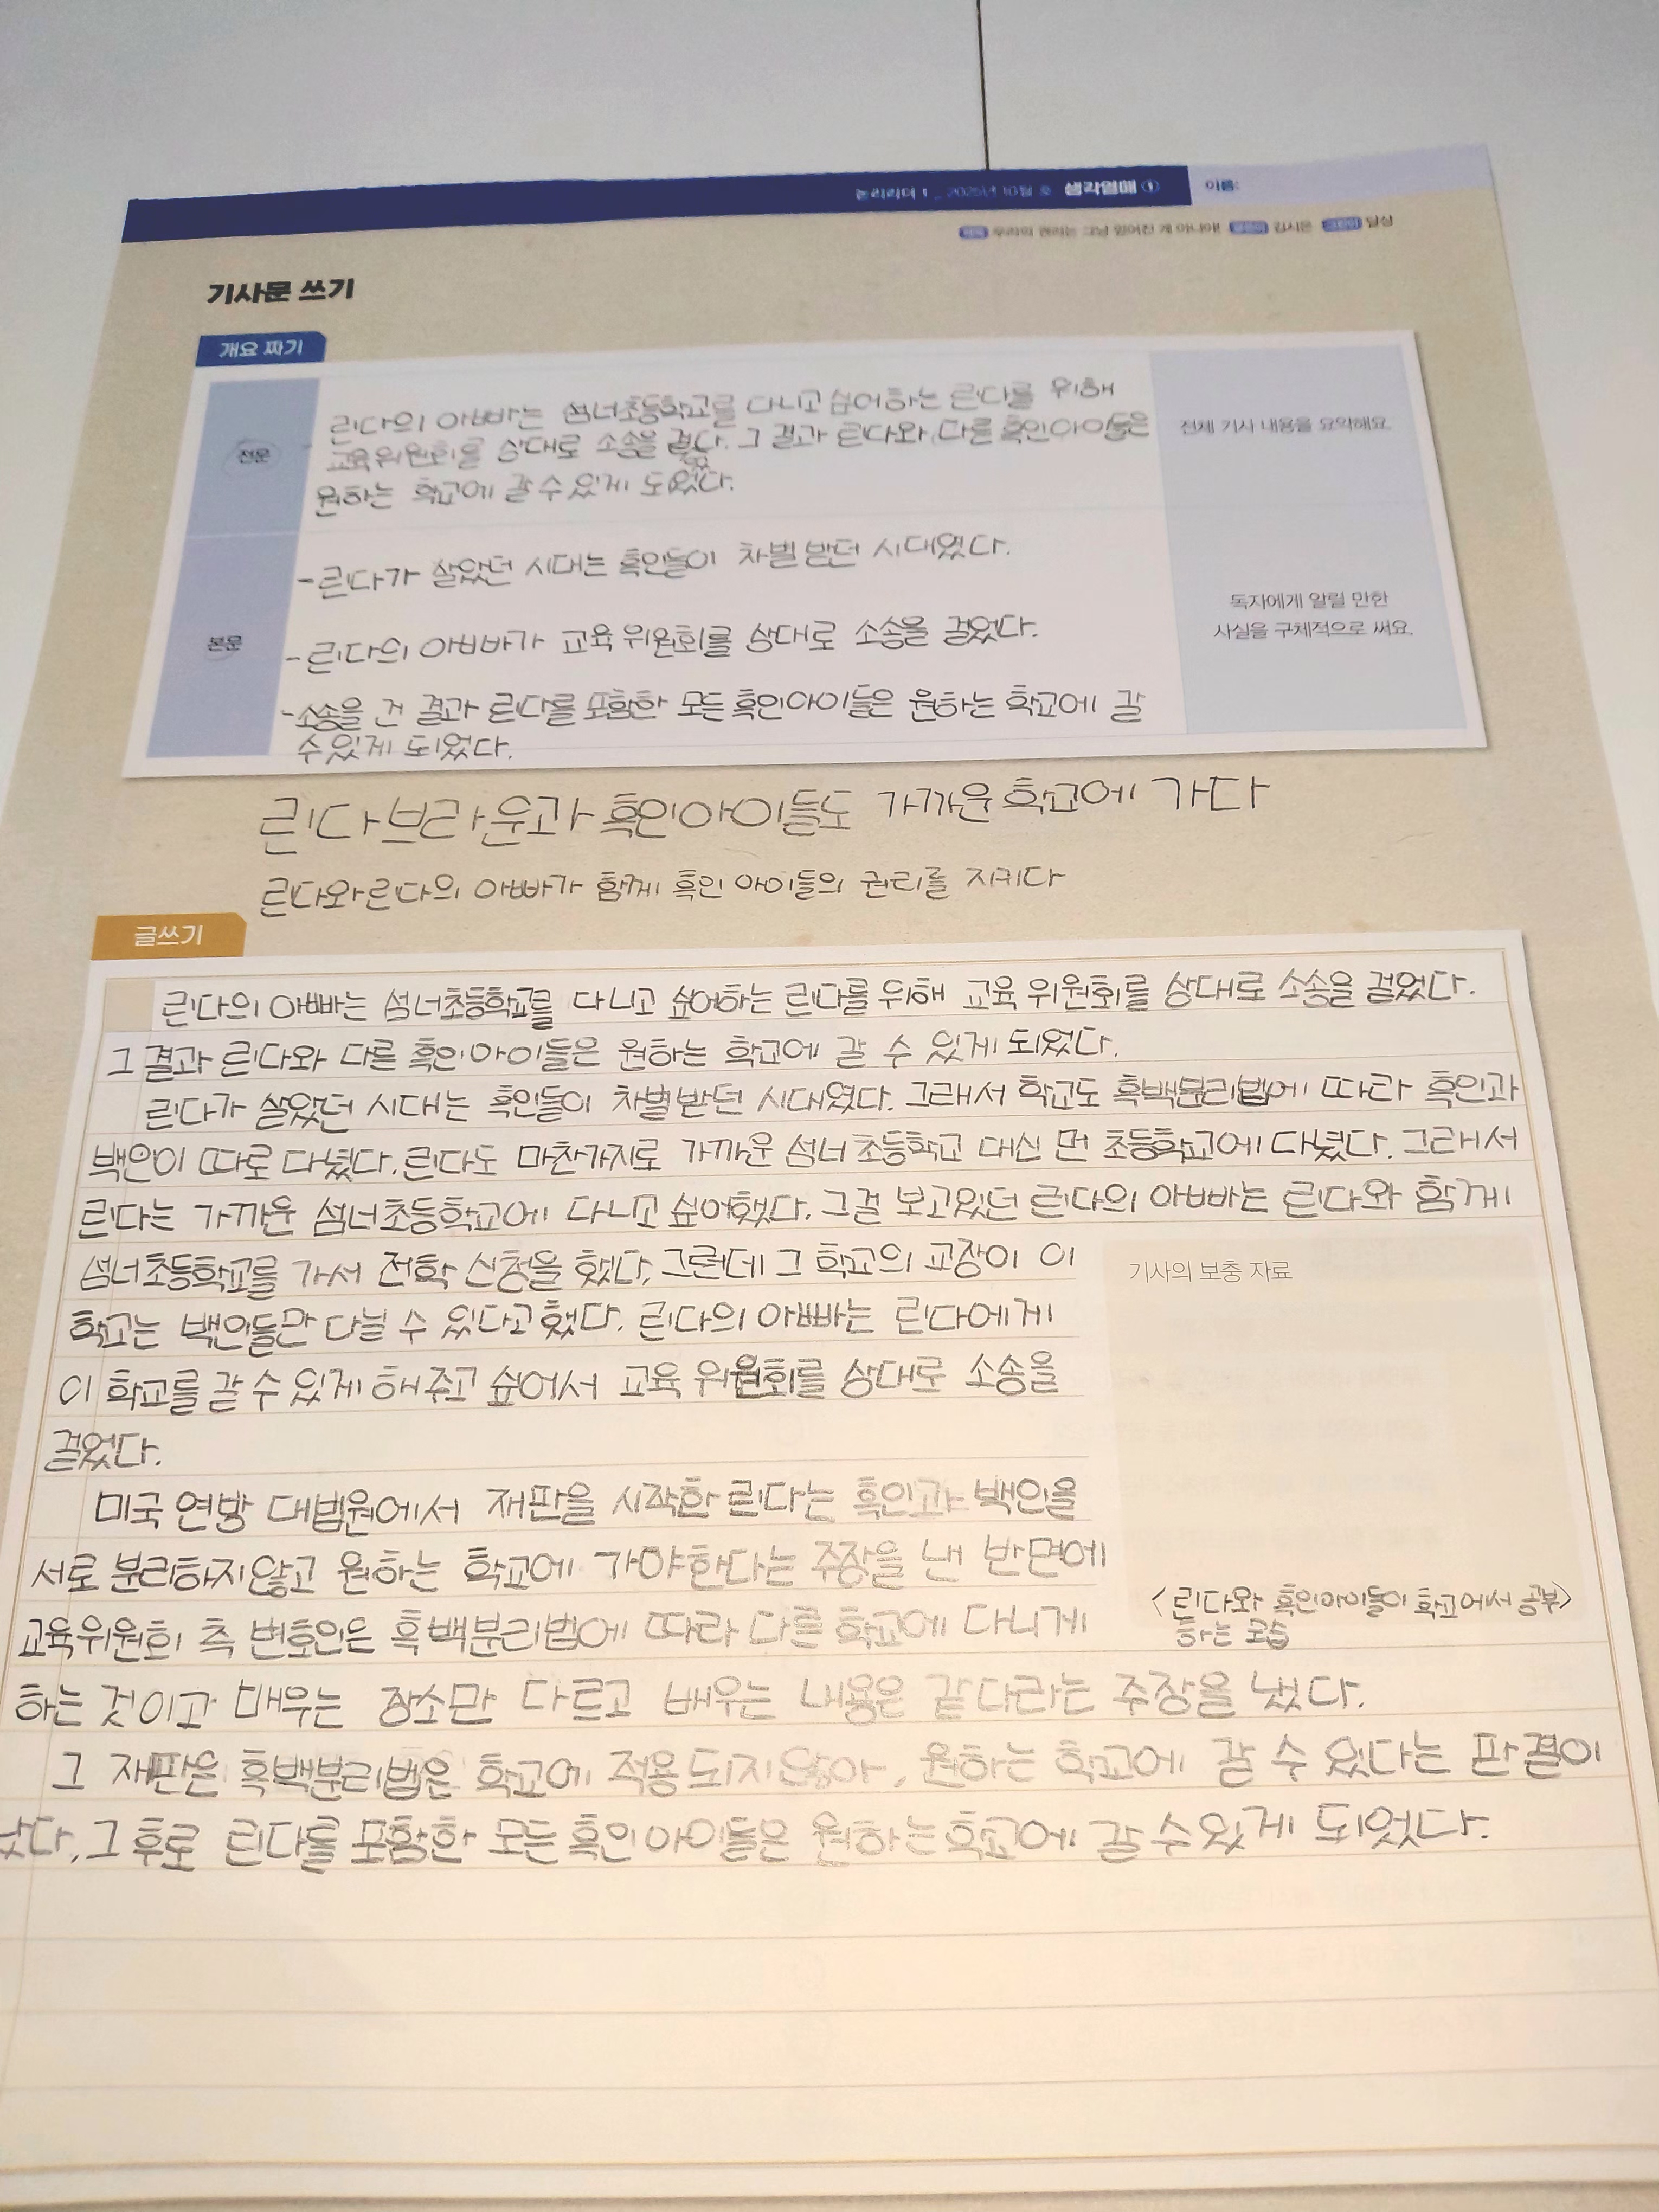 논리리더 1 _ 2025년 10월 호 생각열매 ① 이름:
우리의 권리는 그냥 얻어진 게 아니야! 김시은 일상
기사문 쓰기
개요 짜기
전문
린다의 아빠는 섬너초등학교를 다니고 싶어하는 린다를 위해
교육위원회를 상대로 소송을 걸었다. 그 결과 린다와 다른 흑인아이들은
원하는 학교에 갈 수 있게 되었다.
전체 기사 내용을 요약해요.
본문
-린다가 살았던 시대는 흑인들이 차별 받던 시대였다.
-린다의 아빠가 교육 위원회를 상대로 소송을 걸었다.
-소송을 건 결과 린다를 포함한 모든 흑인아이들은 원하는 학교에 갈
수 있게 되었다.
독자에게 알릴 만한
사실을 구체적으로 써요.
린다 브라운과 흑인아이들도 가까운 학교에 가다
린다와 린다의 아빠가 함께 흑인 아이들의 권리를 지키다
글쓰기
린다의 아빠는 섬너초등학교를 다니고 싶어하는 린다를 위해 교육 위원회를 상대로 소송을 걸었다.
그 결과 린다와 다른 흑인아이들은 원하는 학교에 갈 수 있게 되었다.
린다가 살았던 시대는 흑인들이 차별받던 시대였다. 그래서 학교도 흑백분리법에 따라 흑인과
백인이 따로 다녔다. 린다도 마찬가지로 가까운 섬너 초등학교 대신 먼 초등학교에 다녔다. 그래서
린다는 가까운 섬너초등학교에 다니고 싶어했다. 그걸 보고있던 린다의 아빠는 린다와 함께
섬너초등학교를 가서 전학 신청을 했다. 그런데 그 학교의 교장이 이
학교는 백인들만 다닐 수 있다고 했다. 린다의 아빠는 린다에게
이 학교를 갈 수 있게 해주고 싶어서 교육 위원회를 상대로 소송을
걸었다.
미국 연방 대법원에서 재판을 시작한 린다는 흑인과 백인을
서로 분리하지않고 원하는 학교에 가야한다는 주장을 낸 반면에
교육위원회 측 변호인은 흑백분리법에 따라 다른 학교에 다니게
하는 것이고 매우는 장소만 다르고 배우는 내용은 같다라는 주장을 냈다.
그 재판은 흑백분리법은 학교에 적용되지않아, 원하는 학교에 갈 수 있다는 판결이
났다. 그 후로 린다를 포함한 모든 흑인아이들은 원하는 학교에 갈 수 있게 되었다.
기사의 보충 자료
<린다와 흑인아이들이 학교에서 공부>
하는 모습